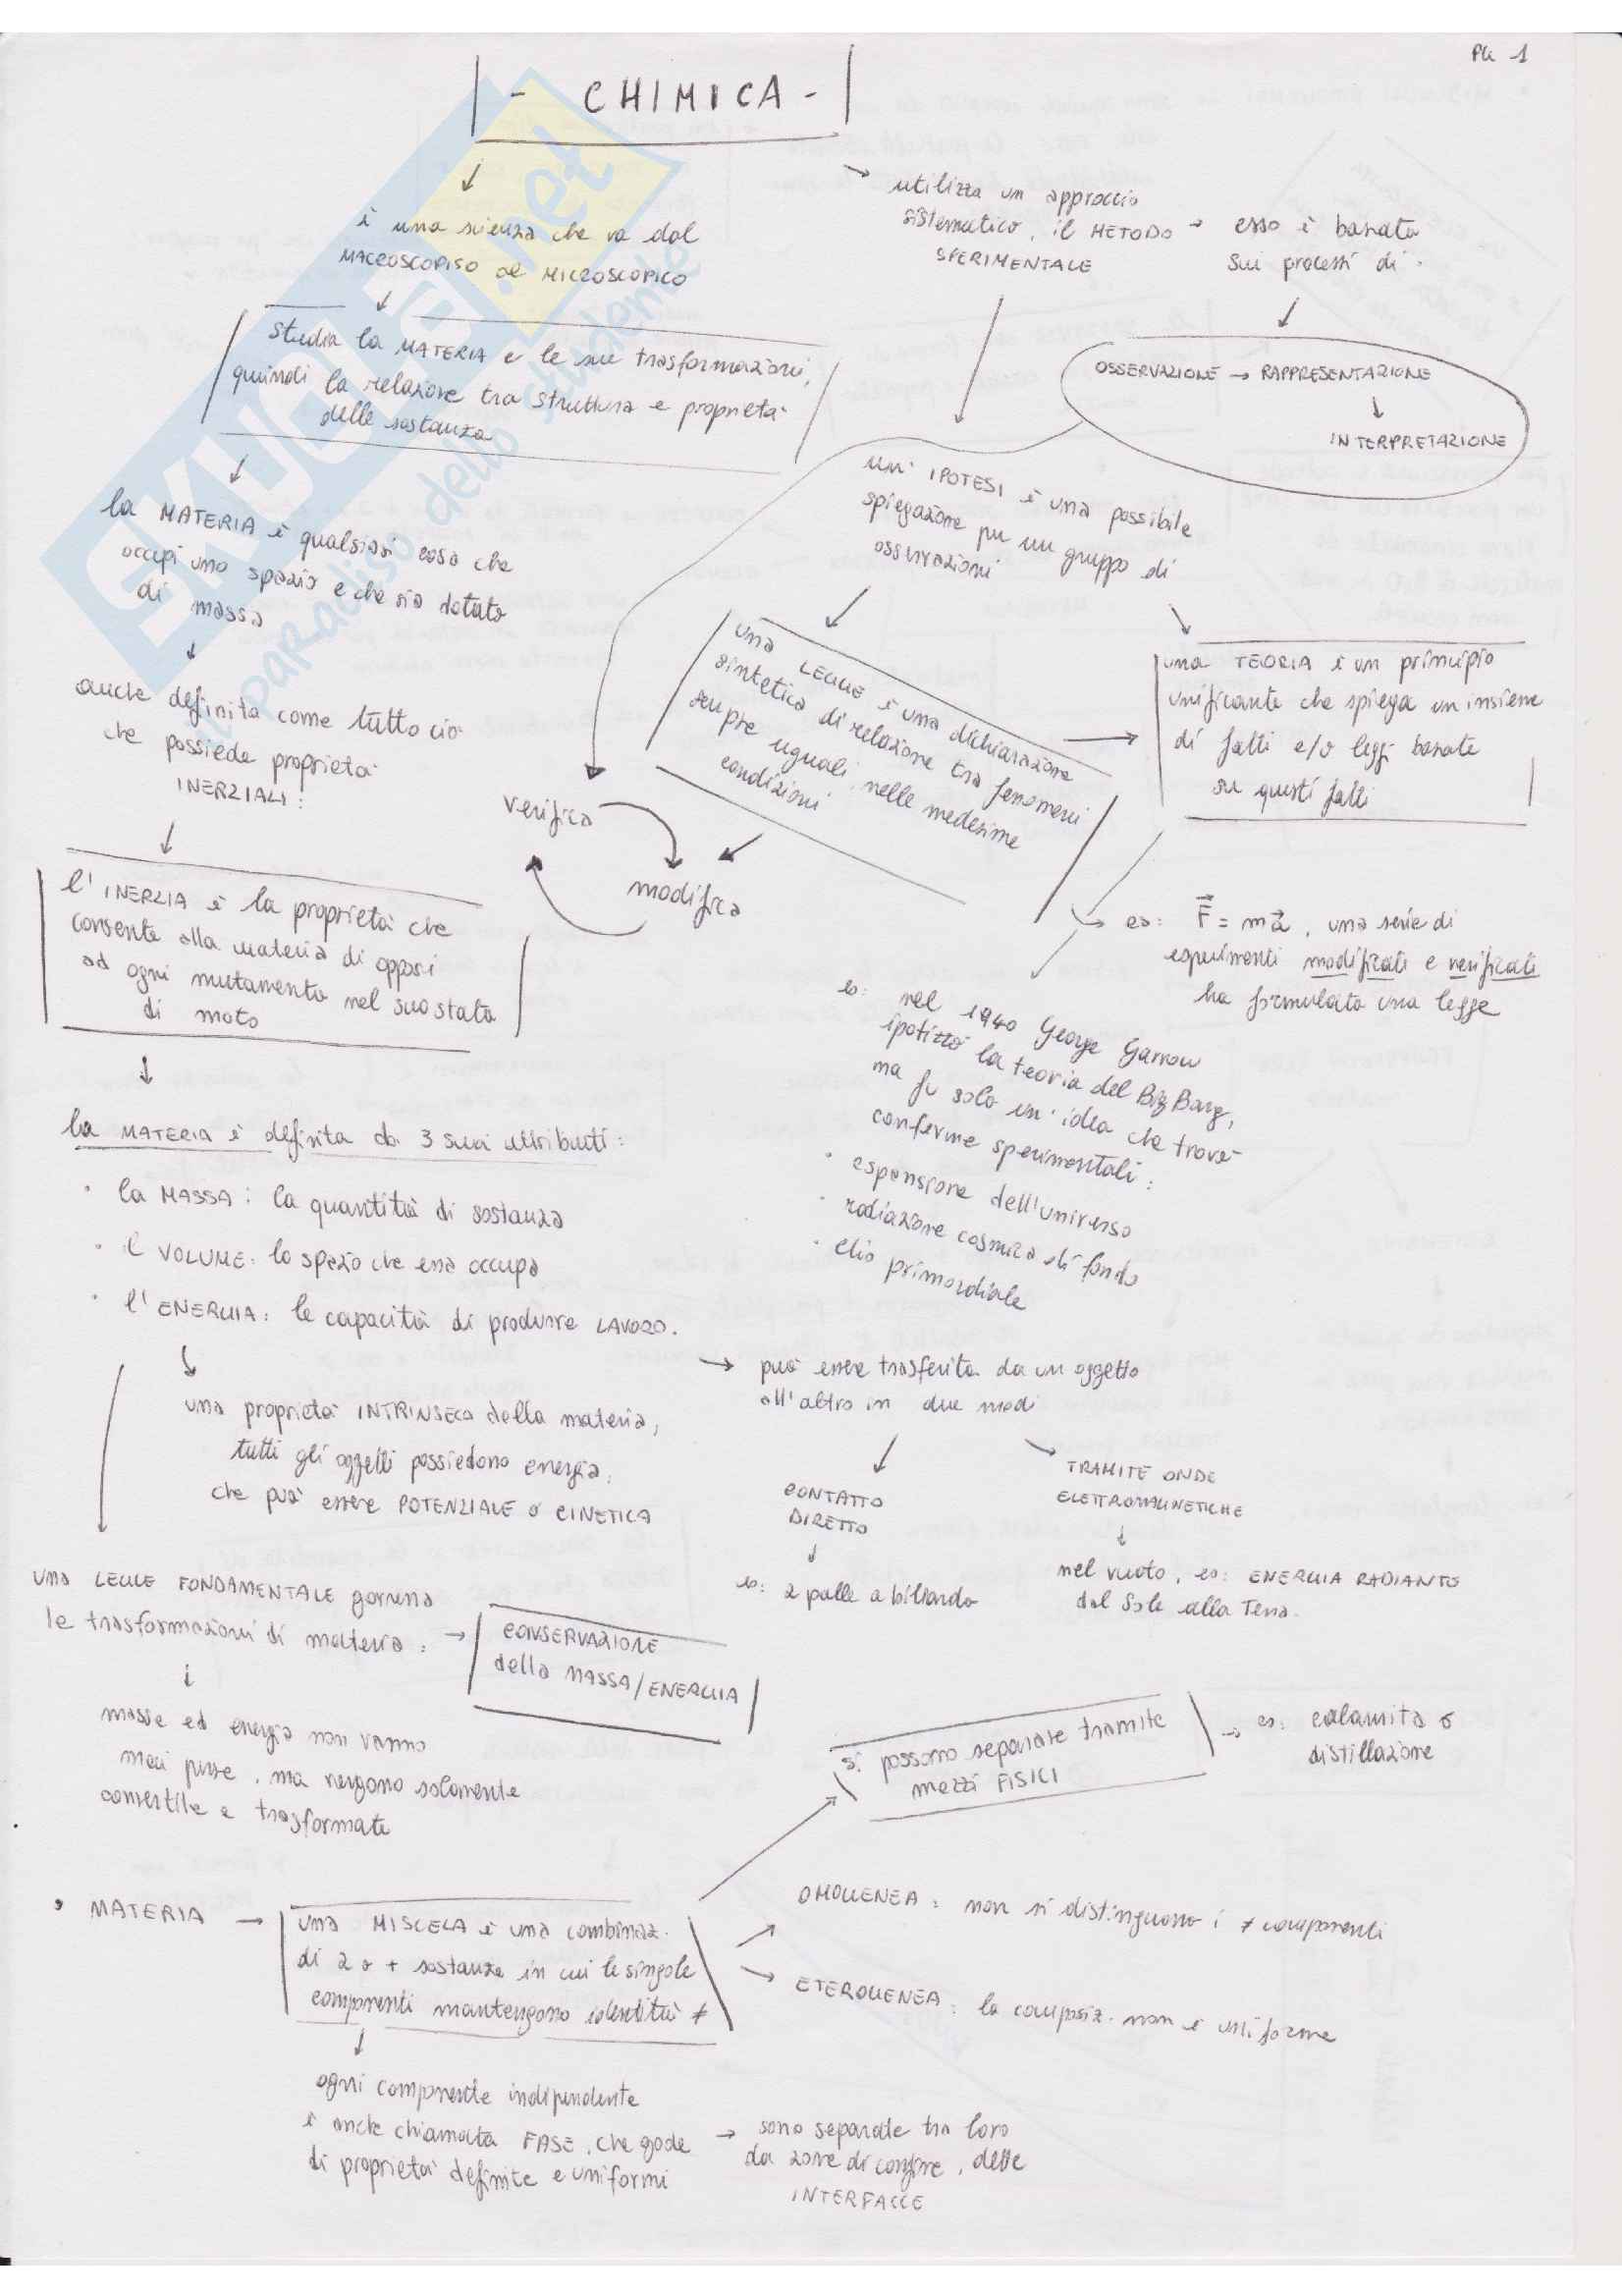 PG 1
- CHIMICA -
è una scienza che va dal
MACROSCOPISO al MICROSCOPICO
utilizza un approccio
sistematico, il METODO
SPERIMENTALE
esso è basato
sui processi di:
OSSERVAZIONE → RAPPRESENTAZIONE
INTERPRETAZIONE
studia la MATERIA e le sue trasformazioni,
quindi la relazione tra struttura e proprietà
delle sostanze
la MATERIA è qualsiasi cosa che
occupi uno spazio e che sia dotato
di massa
anche definita come tutto ciò
che possiede proprietà
INERZIALI:
l'INERZIA è la proprietà che
consente alla materia di opporsi
ad ogni mutamento nel suo stato
di moto
un'IPOTESI è una possibile
spiegazione per un gruppo di
osservazioni
una LEGGE è una dichiarazione
sintetica di relazione tra fenomeni
sempre uguali nelle medesime
condizioni
una TEORIA è un principio
unificante che spiega un insieme
di fatti e/o leggi basate
su questi fatti
verifica
modifica
es: F = ma, una serie di
esperimenti modificati e verificati
ha formulato una legge
es: nel 1940 George Gamow
ipotizzò la teoria del Big Bang,
ma fu solo un'idea che trovò
conferme sperimentali:
· espansione dell'universo
· radiazione cosmica di fondo
· elio primordiale
la MATERIA è definita da 3 suoi attributi:
· la MASSA: la quantità di sostanza
· il VOLUME: lo spazio che essa occupa
· l'ENERGIA: la capacità di produrre LAVORO.
una proprietà INTRINSECA della materia,
tutti gli oggetti possiedono energia,
che può essere POTENZIALE o CINETICA
→ può essere trasferita da un oggetto
all'altro in due modi
CONTATTO
DIRETTO
es: 2 palle a biliardo
TRAMITE ONDE
ELETTROMAGNETICHE
nel vuoto, es: ENERGIA RADIANTO
dal Sole alla Terra.
una LEGGE FONDAMENTALE governa
le trasformazioni di materia: →
CONSERVAZIONE
della MASSA/ENERGIA
masse ed energia non vanno
mai perse, ma vengono solamente
convertite e trasformate
si possono separare tramite
mezzi FISICI
→ es: calamita o
distillazione
· MATERIA →
una MISCELA è una combinaz.
di 2 o + sostanze in cui le singole
componenti mantengono identità ≠
OMOGENEA: non si distinguono i ≠ componenti
ETEROGENEA: la composiz. non è uniforme
ogni componente indipendente
è anche chiamata FASE, che gode
di proprietà definite e uniformi
→ sono separate tra loro
da zone di confine, dette
INTERFACCE
SKUOLA.net
il paradiso dello studente